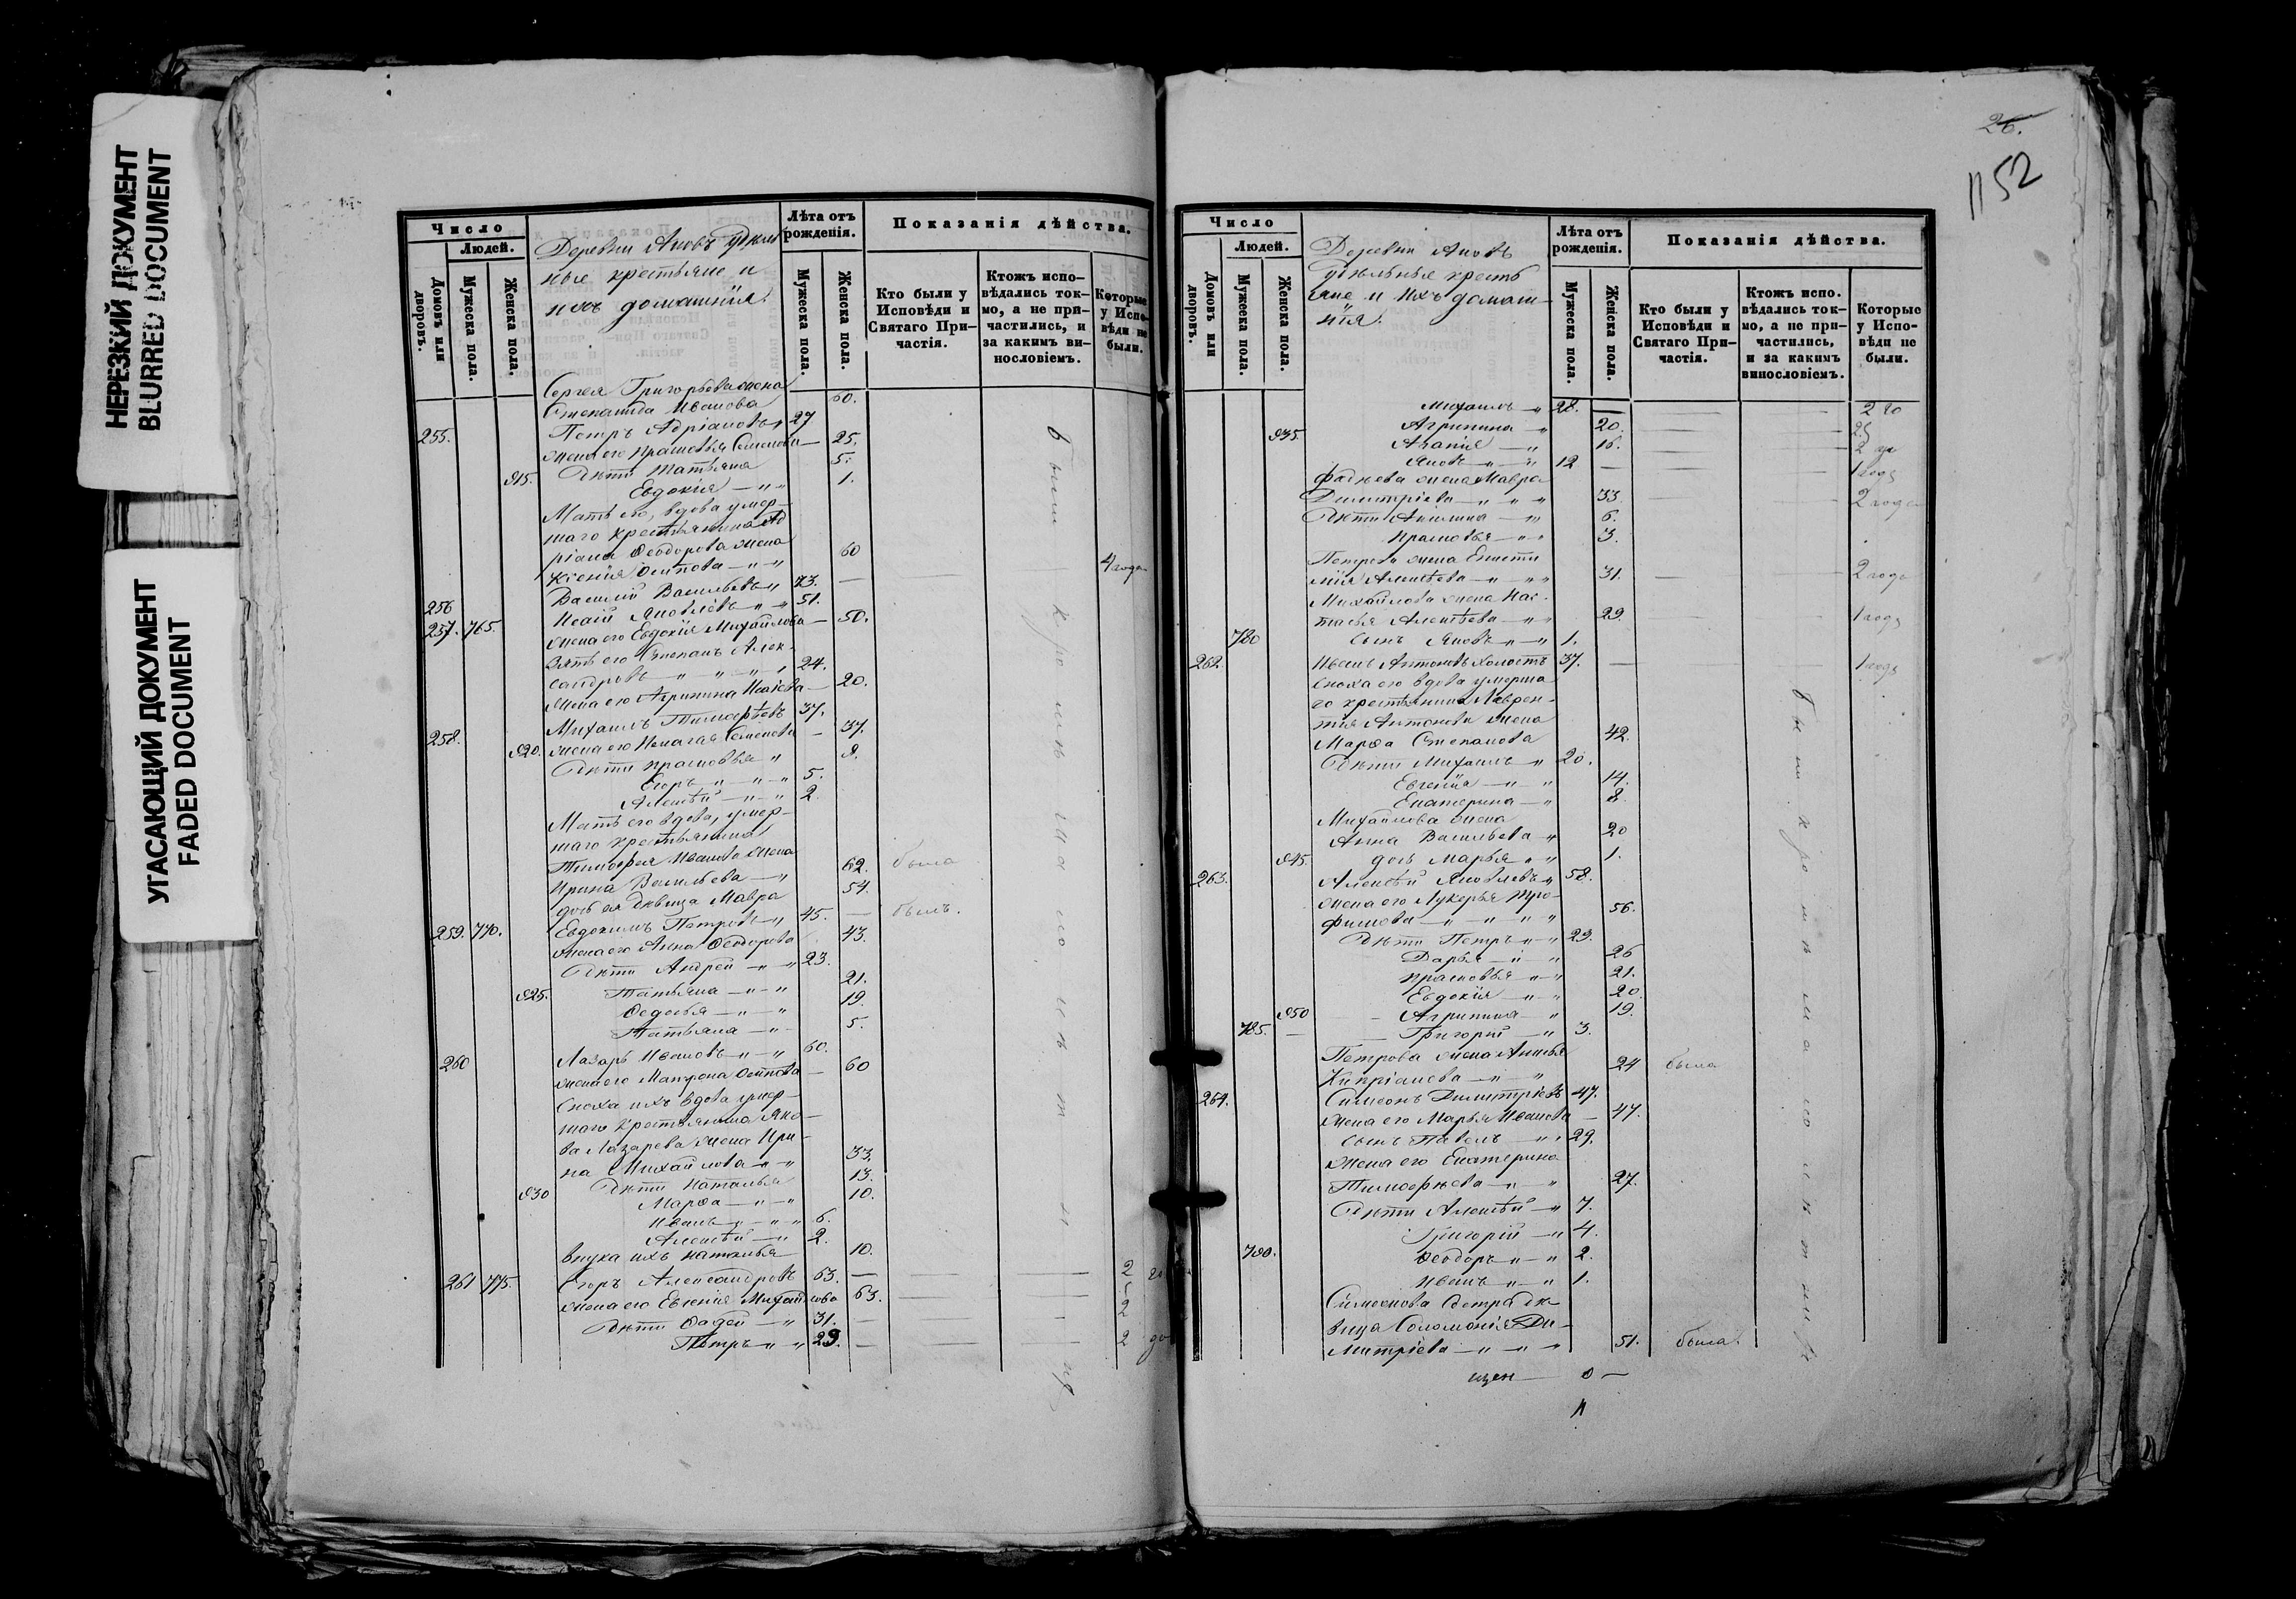 НЕРЕЗКИЙ ДОКУМЕНТ
BLURRED DOCUMENT
УГАСАЮЩИЙ ДОКУМЕНТ
FADED DOCUMENT
Число
Людей.
Домовъ или дворовъ.
Мужеска пола.
Женска пола.
Деревни
ные крестьяне и
ихъ домашнія.
Лѣта отъ рожденія.
Мужеска пола.
Женска пола.
Показанія дѣйства.
Кто были у Исповѣди и Святаго Причастія.
Ктожъ исповѣдались токмо, а не причастились, и за какимъ винословіемъ.
Которые у Исповѣди не были.
Сергея Григорьева жена
Степанида Иванова 60.
255. Петръ Адріановъ 27
жена его Прасковья Семенова 25.
815. Дѣти Татьяна 5.
Евдокія 1.
Мать его, вдова умер-
шаго крестьянина Ад
ріана Ѳеодорова жена
Ксенія Осипова 60 4 года
256 Василій Васильевъ 73.
257. 765. Исаій Яковлевъ 51.
жена его Евдокія Михайлова 50.
Зять его Степанъ Алек-
сандровъ 24.
жена его Агрипина Исаіева 20.
258. Михаилъ Тимофѣевъ 37.
820. жена его Пелагея Семенова 37.
Дѣти Прасковья 8.
Егоръ 5.
Алексѣй 2.
Мать его вдова, умер-
шаго крестьянина
Тимофея Иванова жена
Ирина Васильева 62. была
дочь ея дѣвица Мавра 54.
259. 770. Евдокимъ Петровъ 45. былъ.
жена его Анна Ѳеодорова 43.
Дѣти Андрей 23.
825. Татьяна 21.
Ѳедосья 19.
Татьяна 5.
260 Лазарь Ивановъ 60.
жена его Матрона Осипова 60
Сноха ихъ вдова умер-
шаго крестьянина Яко-
ва Лазарева жена Ири-
на Михайлова 33.
830 Дѣти Наталья 13.
Марѳа 10.
Иванъ 6.
Алексѣй 2.
Внука ихъ Наталья 10.
261 775. Егоръ Александровъ 63. 2
жена его Евгенія Михайлова 63. 2
Дѣти Фадей 31.
Петръ 29. 2
26.
1152
Число
Людей.
Домовъ или дворовъ.
Мужеска пола.
Женска пола.
Деревни
удѣльные кресть
яне и ихъ домаш-
нія.
Лѣта отъ рожденія.
Мужеска пола.
Женска пола.
Показанія дѣйства.
Кто были у Исповѣди и Святаго Причастія.
Ктожъ исповѣдались токмо, а не причастились, и за какимъ винословіемъ.
Которые у Исповѣди не были.
Михаилъ 28. 2 го
835. Агрипина 20.
Агапія 16.
Яковъ 12 1 годъ
Фадѣева жена Мавра
Димитріева 33. 2 года
Дѣти Акилина 6.
Прасковья 3.
Петрова жена
Алексѣева 31. 2 года
Михайлова жена Нас-
тасья Алексѣева 29. 1 годъ
780 сынъ Яковъ 1.
262. Иванъ Антоновъ холостъ 37. 1 годъ
Сноха его вдова умерша
го крестьянина Лаврен-
тія Антонова жена
Марѳа Степанова 42.
Дѣти Михаилъ 20.
Евгенія 14.
Екатерина 8.
Михайлова жена
Анна Васильева 20
845. дочь Марья 1.
263. Алексѣй Яковлевъ 58.
жена его Лукерья Тро-
фимова 56.
Дѣти Петръ 29.
Дарья 26
Прасковья 21.
Евдокія 20.
850 Агрипина 19.
785. Григорій 3.
Петрова жена
Кипріанова 24 была
264. Симеонъ Димитріевъ 47.
жена его Марья Иванова 47.
сынъ Павелъ 29.
жена его Екатерина
Тимофѣева 27.
Дѣти Алексѣй 7.
Григорій 4.
790. Ѳеодоръ 2.
Иванъ 1.
Симеонова сестра дѣ-
вица Соломонія Ди-
митріева 51. была